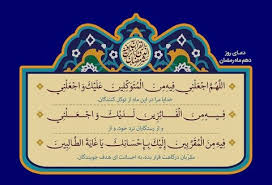 دعای روز
دهم ماه رمضان
اللَّهُمَّ اجْعَلْنِي فِيهِ مِنَ الْمُتَوَكِّلِينَ عَلَيْكَ وَاجْعَلْنِي
خدایا مرا در این ماه از توکل کنندگان
فِيهِ مِنَ الْفَائِزِينَ لَدَيْكَ وَاجْعَلْنِي
و از رستگاران نزد خود، و از
فِيهِ مِنَ الْمُقَرَّبِينَ إِلَيْكَ بِإِحْسَانِكَ يَا غَايَةَ الطَّالِبِينَ
مقربان درگاهت قرار بده، به احسانت ای هدف جویندگان.